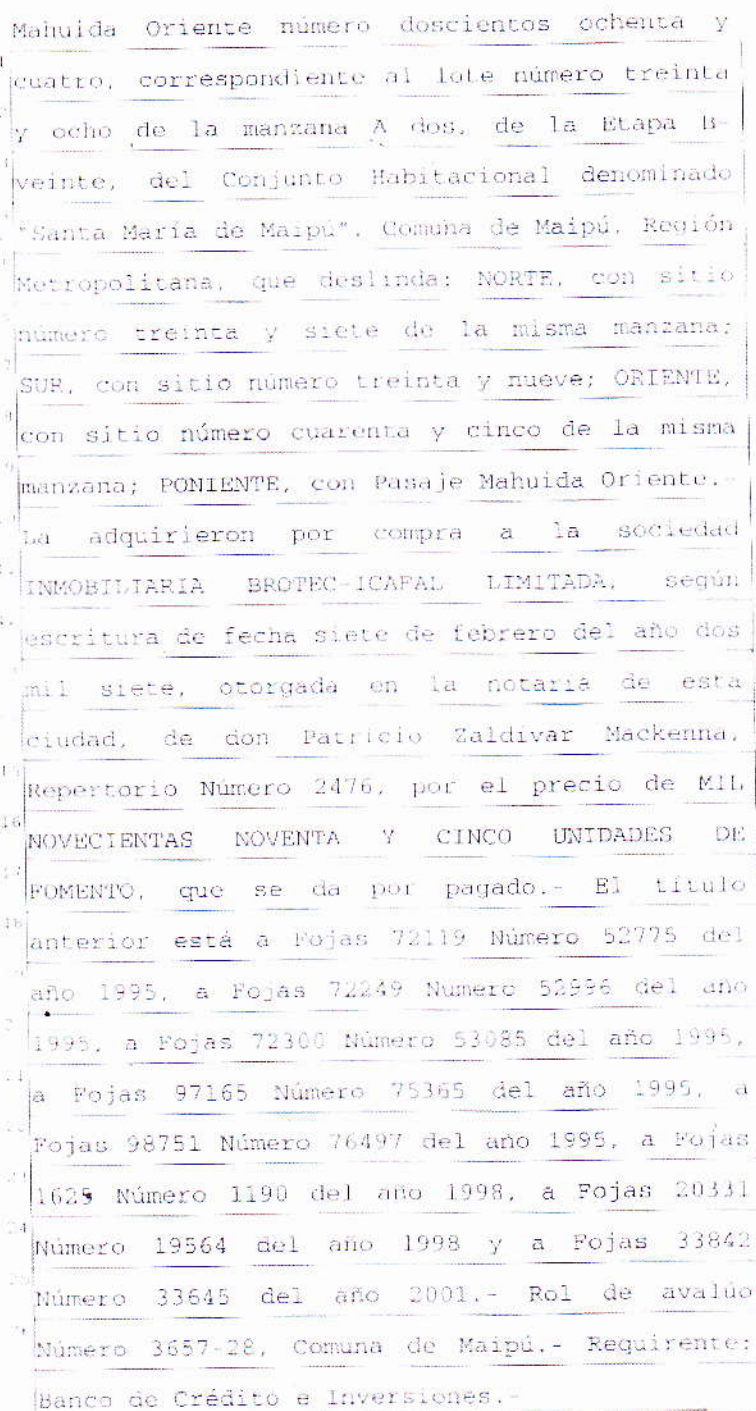 Mahuida Oriente número doscientos ochenta y
cuatro, correspondiente al lote número treinta
y ocho de la manzana A dos, de la Etapa B-
veinte, del Conjunto Habitacional denominado
"Santa María de Maipú", Comuna de Maipú, Región
Metropolitana, que deslinda: NORTE, con sitio
número treinta y siete de la misma manzana;
SUR, con sitio número treinta y nueve; ORIENTE,
con sitio número cuarenta y cinco de la misma
manzana; PONIENTE, con Pasaje Mahuida Oriente.-
La adquirieron por compra a la sociedad
INMOBILIARIA BROTEC-ICAFAL LIMITADA, según
escritura de fecha siete de febrero del año dos
mil siete, otorgada en la notaría de esta
ciudad, de don Patricio Zaldivar Mackenna,
Repertorio Número 2476, por el precio de MIL
NOVECIENTAS NOVENTA Y CINCO UNIDADES DE
FOMENTO, que se da por pagado.- El título
anterior está a Fojas 72119 Número 52775 del
año 1995, a Fojas 72249 Numero 52996 del año
1995, a Fojas 72300 Número 53085 del año 1995,
a Fojas 97165 Número 75365 del año 1995, a
Fojas 98751 Número 76497 del año 1995, a Fojas
1625 Número 1190 del año 1998, a Fojas 20331
Número 19564 del año 1998 y a Fojas 33842
Número 33645 del año 2001.- Rol de avalúo
Número 3657-28, Comuna de Maipú.- Requirente:
Banco de Crédito e Inversiones.-